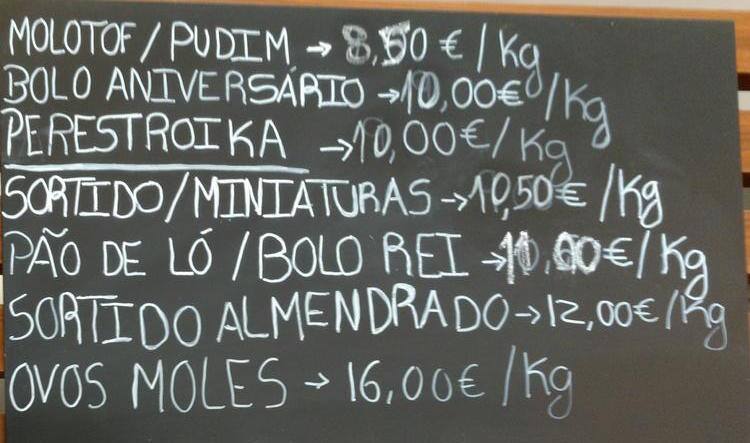 MOLOTOF/PUDIM → 8,50 €/Kg
BOLO ANIVERSÁRIO → 10,00€/Kg
PERESTROIKA → 10,00€/Kg
SORTIDO/MINIATURAS → 10,50€/Kg
PÃO DE LÓ/BOLO REI → €/Kg
SORTIDO ALMENDRADO → 12,00€/Kg
OVOS MOLES → 16,00€/Kg